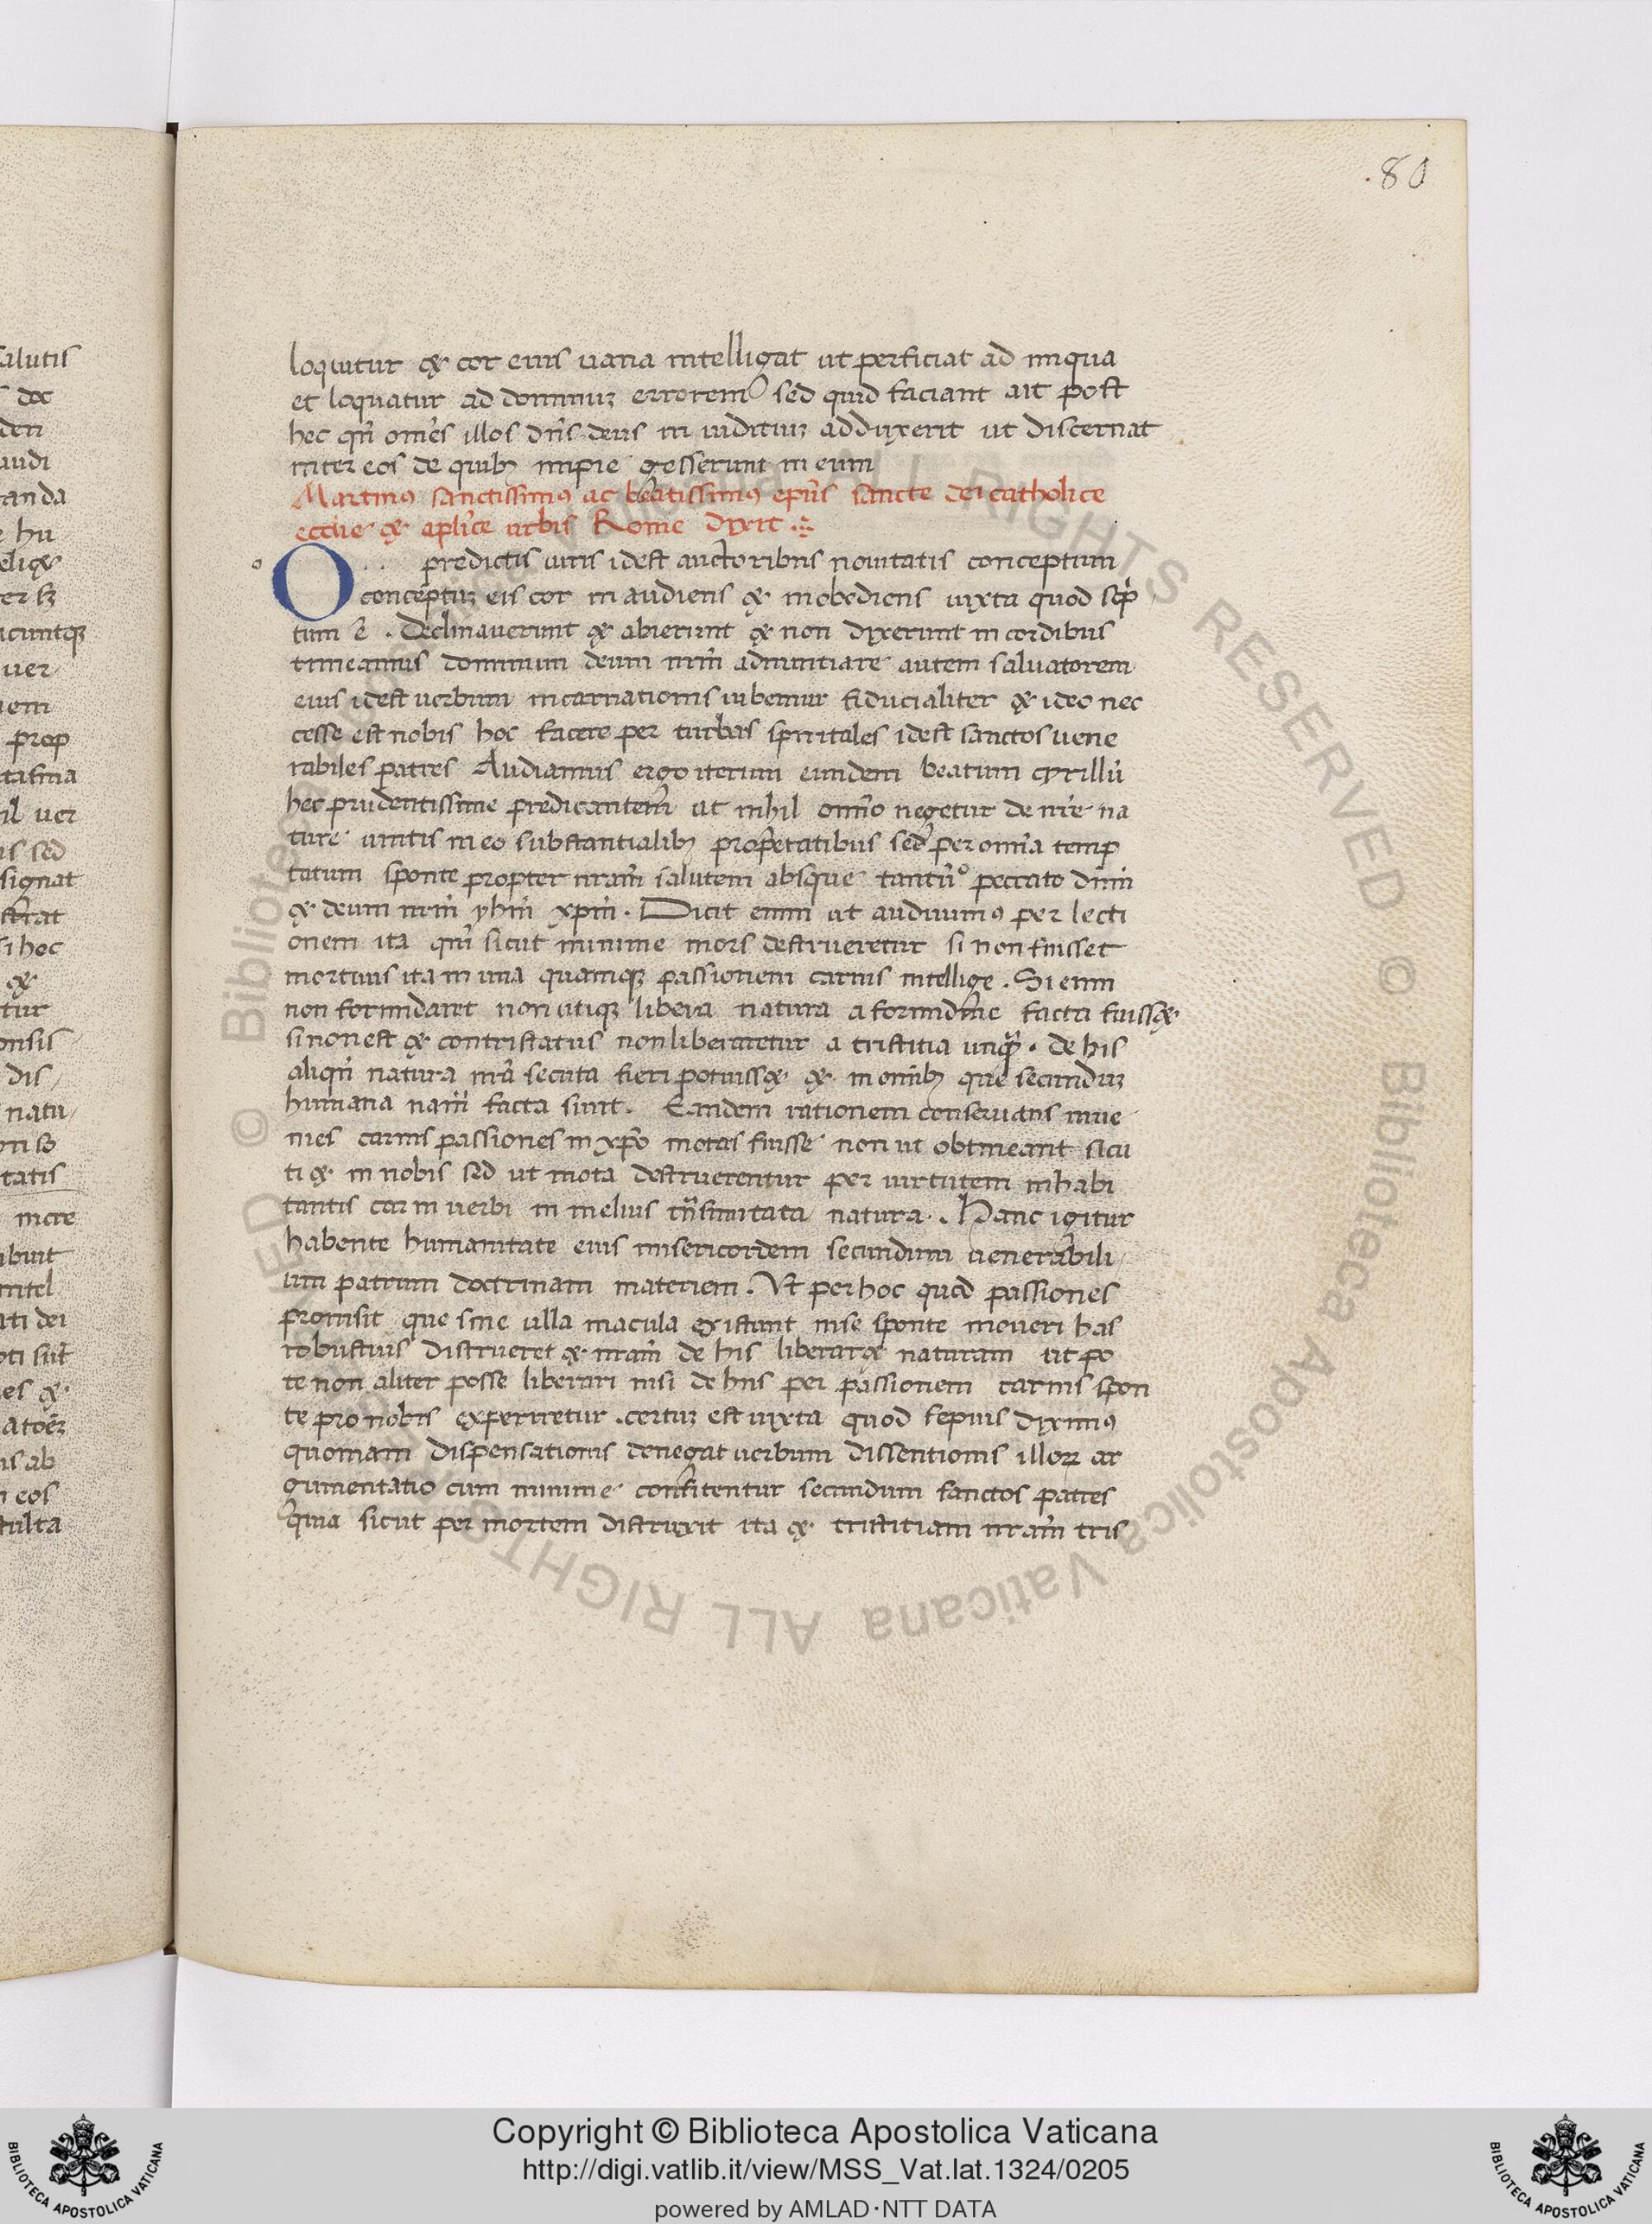 80
loquitur & cor eius uana intelligat ut perficiat ad iniqua
et loquatur ad dominuz errorem sed quid faciant ait post
hec qñ oms̃ illos dñs deus in iuditiuz adduxerit ut discernat
inter eos de quibꝫ impie gesserunt in eum
Martinꝰ sanctissimꝰ ac beatissimꝰ epũs sancte dei catholice
ecctie & aplice urbis Rome dixit
O predictis uiris idest auctoribus nouitatis conceptum
conceptuz eis cor in audiens & inobediens iuxta quod scrip̃
tum ẽ . Declinauerunt & abierunt & non dixerunt in cordibus
timeamus dominum deum nrm̃ adnuntiare autem saluatorem
eius idest uerbum incarnationis iubemur fiducialiter & ideo nec
cesse est nobis hoc facere per turbas spiritales idest sanctos uene
rabiles patres Audiamus ergo iterum eundem beatum cyrillũ
hec prudentissime predicantem ut nihil omĩo negetur de nr̃e na
ture unitis in eo substantialibꝫ propetatibus sed per omĩa temp
tatum sponte propter nram̃ salutem absque tantũ peccato dnm̃
& deum nrm̃ yhm̃ xpm̃ . Dicit enim ut audiuimꝰ per lecti
onem ita qm̃ sicut minime mors destrueretur si non fuisset
mortuus ita in una quamqꝫ passionem carnis intellige . Si enim
non formidaret non utiqꝫ libera natura a formidine facta fuiss&
si non est & contristatus non liberaretur a tristitia unq̃ . de his
aliqñ natura nrã secuta fieri potuiss& & in omĩbꝫ que secunduz
humana nam̃ facta sunt . Eandem rationem conseruans inue
nies carnis passiones in xpõ motas fuisse non ut obtineant sicu
ti & in nobis sed ut mota destruerentur per uirtutem inhabi
tantis car in uerbi in melius
natura . Hanc igitur
habente humanitate eius misericordem secundum uenerabili
um patrum doctrinam materiem . Ut per hoc quod passiones
promisit que sine ulla macula existunt in se sponte moueri has
robustius distrueret & nram̃ de his liberar& naturam ut po
te non aliter posse liberari nisi de hiis per passionem carnis spon
te pro nobis experiretur . certuz est iuxta quod sepius diximꝰ
quoniam dispensationis denegat uerbum dissentionis illoꝝ ar
gumentatio cum minime confitentur secundum sanctos patres
quia sicut per mortem distruxit ita & tristitiam nram̃ tris
Copyright © Biblioteca Apostolica Vaticana
http://digi.vatlib.it/view/MSS_Vat.lat.1324/0205
powered by AMLAD·NTT DATA